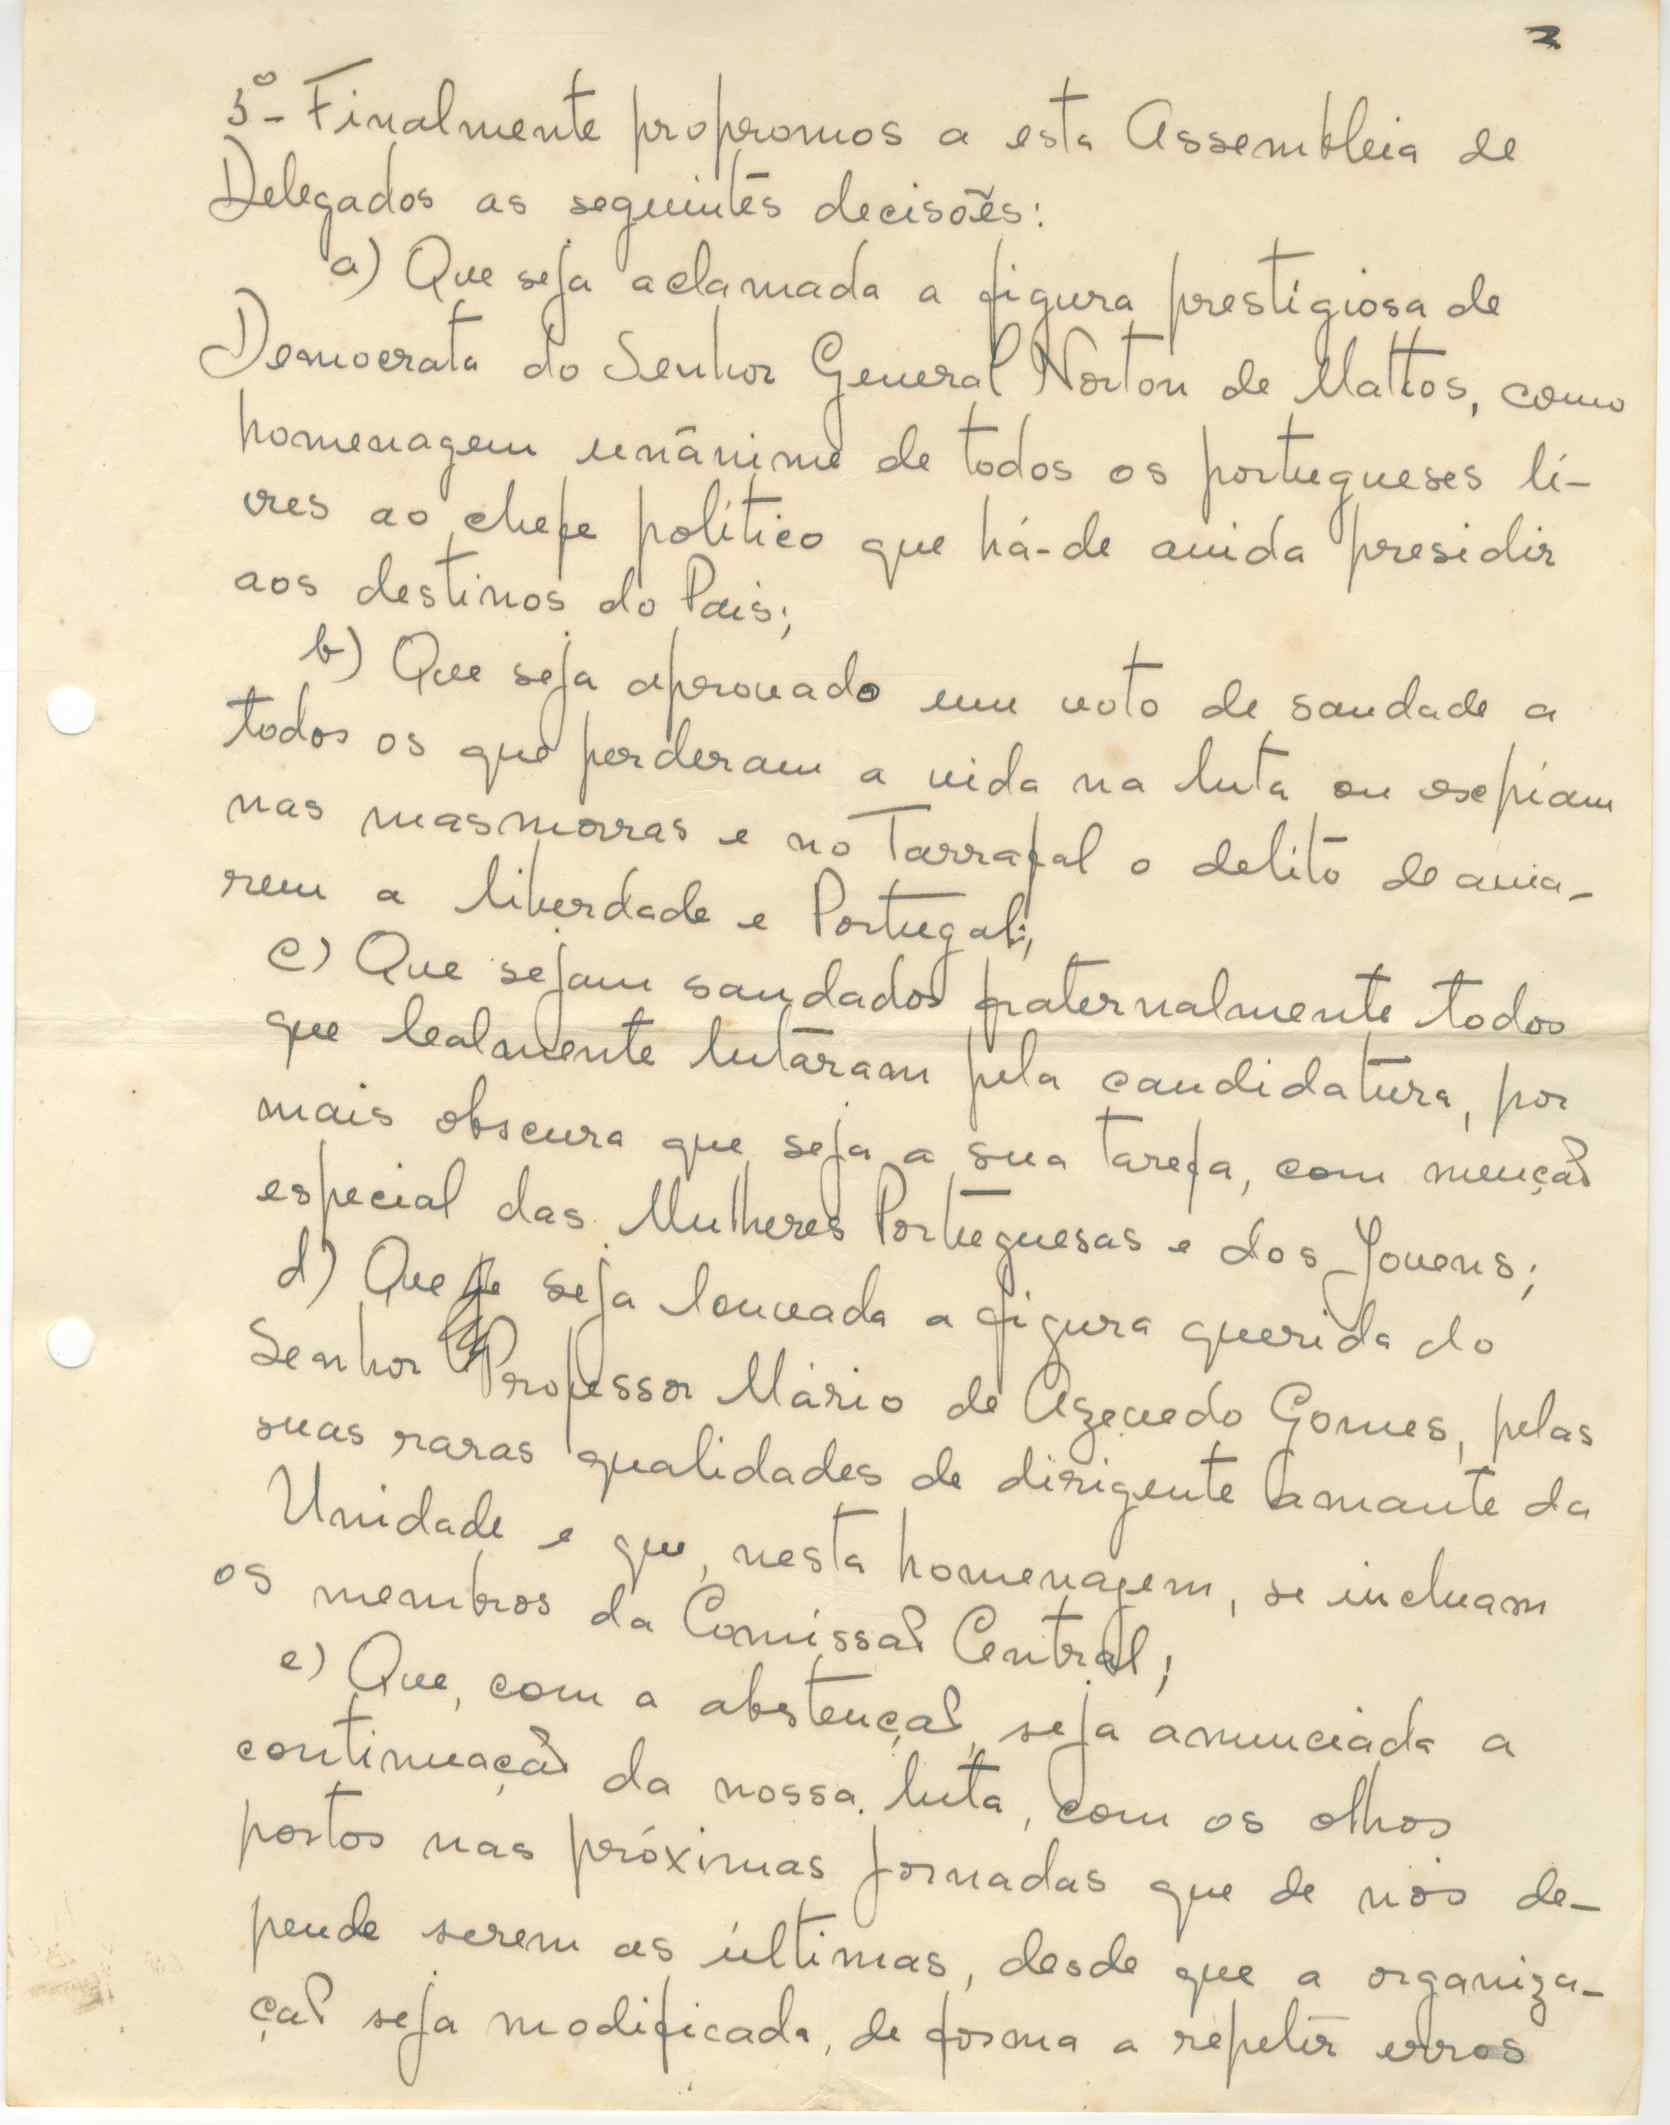 3
3º- Finalmente propromos a esta Assembleia de
Delegados as seguintes decisões:
a) Que seja aclamada a figura prestigiosa de
Democrata do Senhor General Norton de Mattos, como
homenagem unânime de todos os portugueses li-
vres ao chefe político que há-de ainda presidir
aos destinos do Pais;
b) Que seja aprovado um voto de saudade a
todos os que perderam a vida na luta ou expiam
nas masmorras e no Tarrafal o delito de ama-
rem a liberdade e Portugal;
c) Que sejam saudados fraternalmente todos
que lealmente lutaram pela candidatura, por
mais obscura que seja a sua tarefa, com menção
especial das Mulheres Portuguesas e dos Jovens;
d) Que seja louvada a figura querida do
Senhor Professor Mário de Azevedo Gomes, pelas
suas raras qualidades de dirigente amante da
Unidade e que, nesta homenagem, se incluam
os membros da Comissão Central;
e) Que, com a abstenção, seja anunciada a
continuação da nossa luta, com os olhos
postos nas próximas jornadas que de nós de-
pende serem as últimas, desde que a organiza-
ção seja modificada, de forma a repetir erros